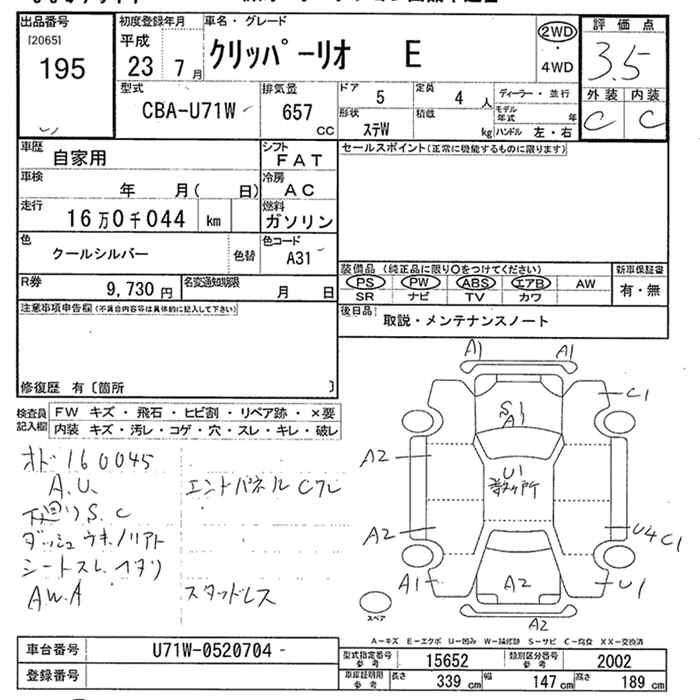 出品番号
[2065]
195
初度登録年月
平成
23 7月
車名・グレード
クリッパーリオ E
2WD
・
4WD
評価点
3.5
外装 内装
C C
型式
CBA-U71W
排気量
657
CC
ドア
5
定員
4人
形状
ステW
積載
kg
ディーラー・並行
モデル年式 年
ハンドル 左・右
車歴
自家用
シフト
FAT
車検
年 月( 日)
冷房
AC
走行
16万0千044 km
燃料
ガソリン
色
クールシルバー
色替
色コード
A31
R券
9,730円
名変通知期限
月 日
セールスポイント(正常に機能するものに限ります)
装備品 (純正品に限り○をつけてください)
PS PW ABS エアB AW
SR ナビ TV カワ
新車保証書
有・無
後日品
取説・メンテナンスノート
注意事項申告欄(不具合内容等は具体的に記入して下さい)
修復歴 有〔箇所 〕
検査員記入欄
FW キズ・飛石・ヒビ割・リペア跡・×要
内装 キズ・汚レ・コゲ・穴・スレ・キレ・破レ
オド160045
A.U.
下廻りS.C
ダッシュウキ.ノリアト
シートスレ.ヘタリ
AW.A
エンドパネルCフレ
スタッドレス
A1 A1
S1
A1
C1
A2
U1
A2
U4 C1
A1
A2
U1
A2
スペア
A-キズ E-エクボ U-凹み W-補修跡 S-サビ C-腐食 XX-交換済
車台番号
U71W-0520704
登録番号
型式指定番号
参考
15652
類別区分番号
参考
2002
車庫証明用
参考
長さ 339cm 幅 147cm 高さ 189cm